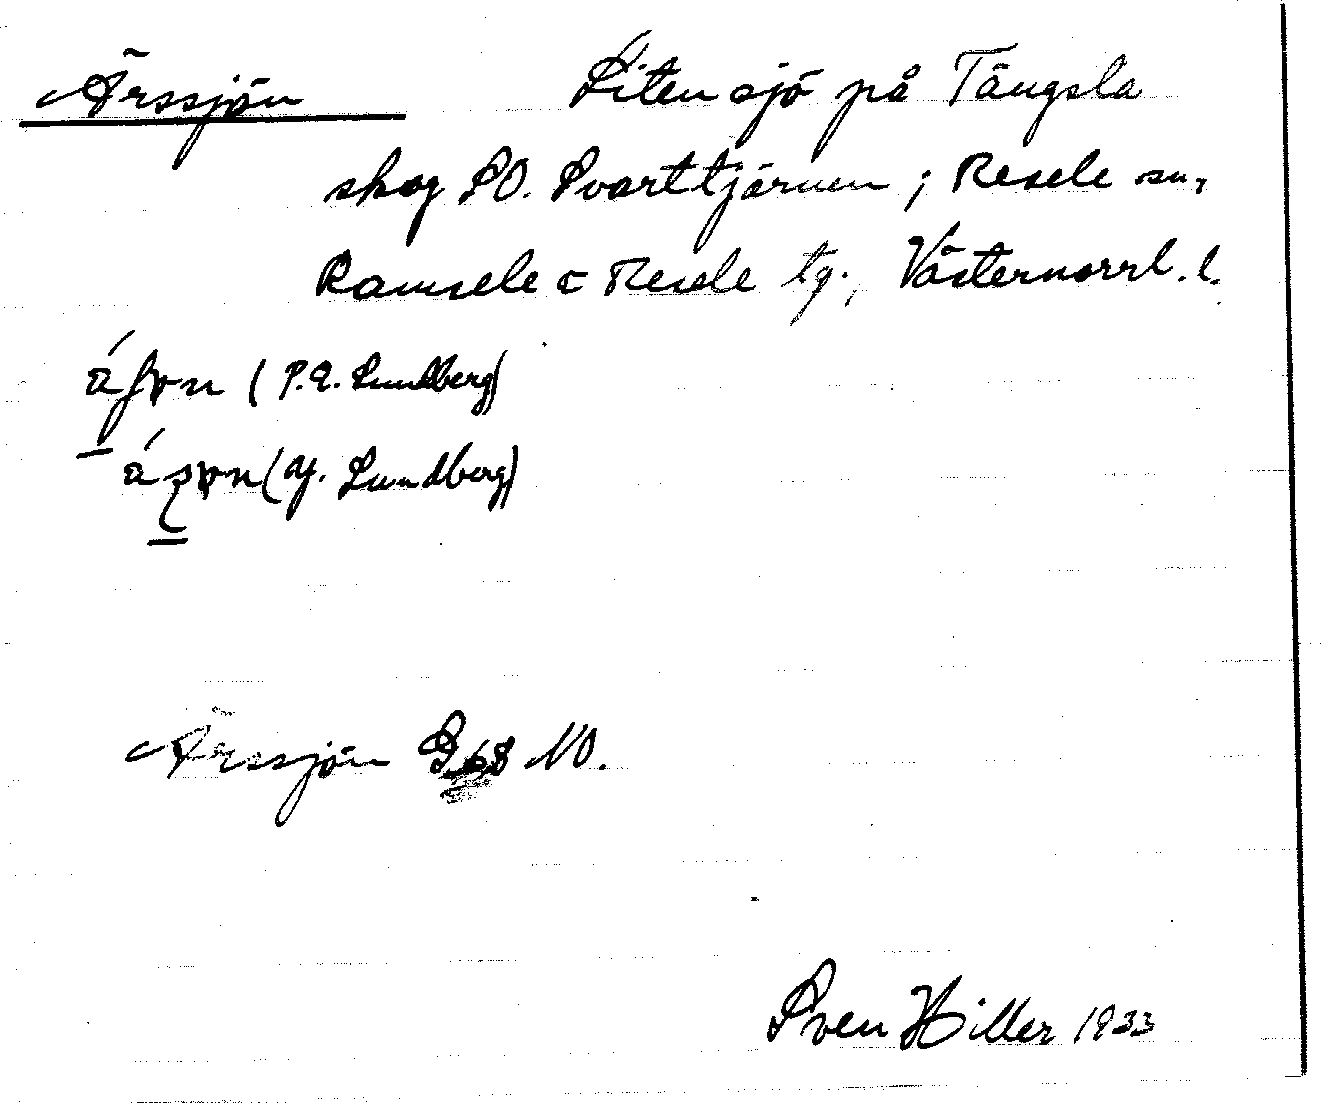 Ärssjön Liten sjö på Tängsla
skog SO. Svarttjärnen; Resele sn,
Ramsele o Resele tg., Västernorrl. l.
(P.E. Lundberg)
(Aj. Lundberg)
Ärssjön G 68 NO.
Sven Hiller 1933